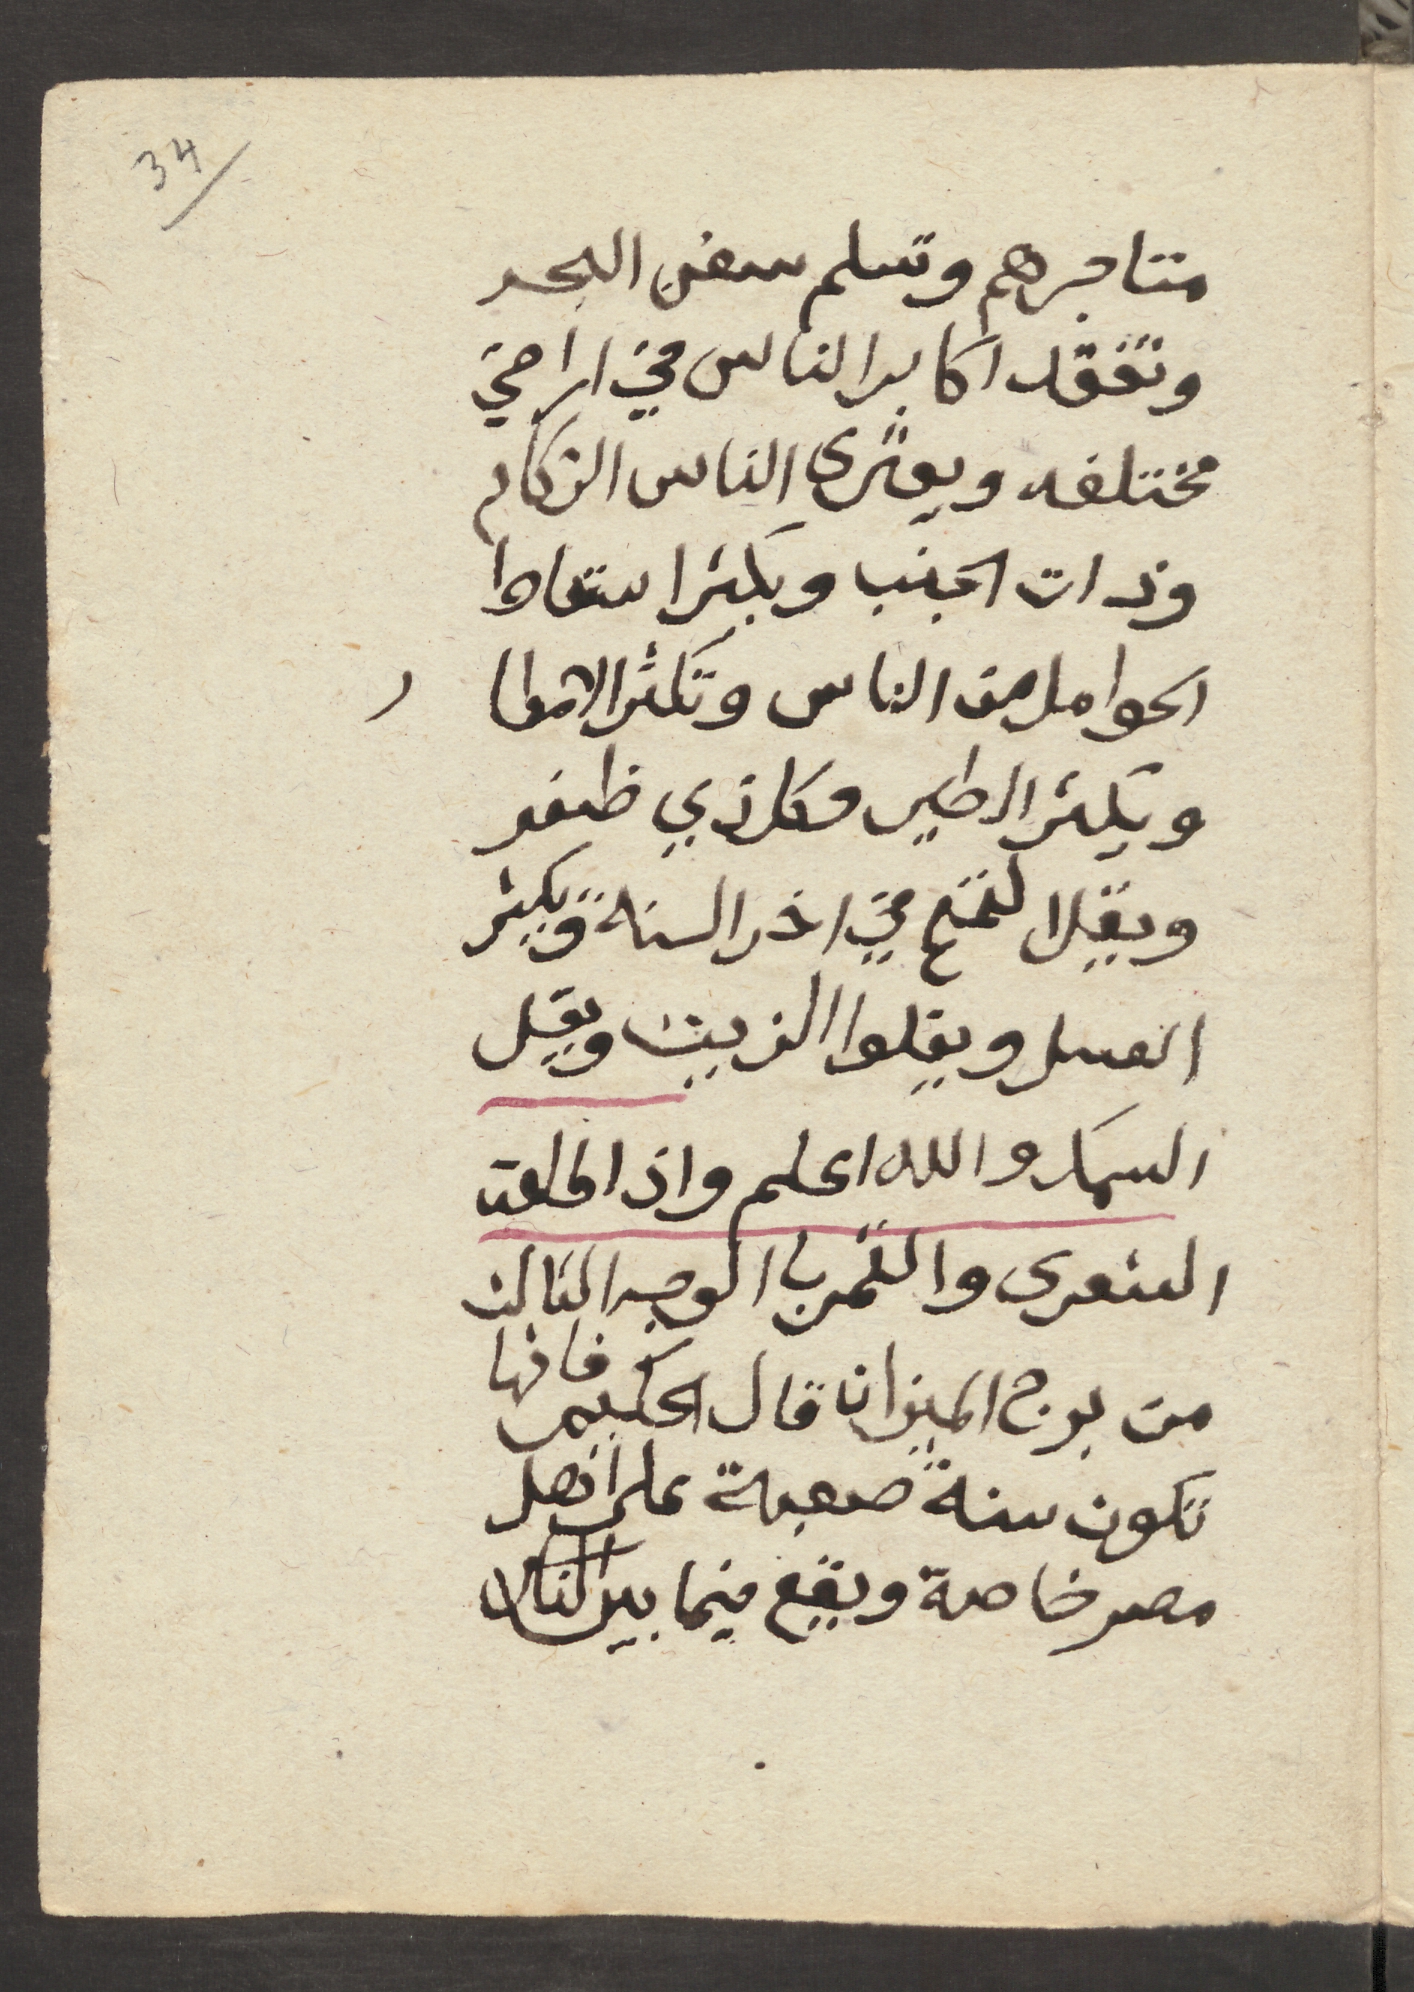 34
متاجرهم وتسلم سفن البحر
وتفقد اكابر الناس في اراضي
مختلفه ويعترى الناس الزكام
وذات الجنب ويكثر اسقاط
الحوامل من الناس وتكثر الامطا ر
ويكثر الطير وكل ذي ظفر
ويقل القمح في اخر السنة ويكثر
العسل ويغلوا الزيت ويقل
السمك والله اعلم واذا طلعت
الشعرى والقمر با الوجه الثالث
من برج الميزان قال الحكيم فانها
تكون سنة صعبة على اهل
مصر خاصة ويقع فيما بين الناس